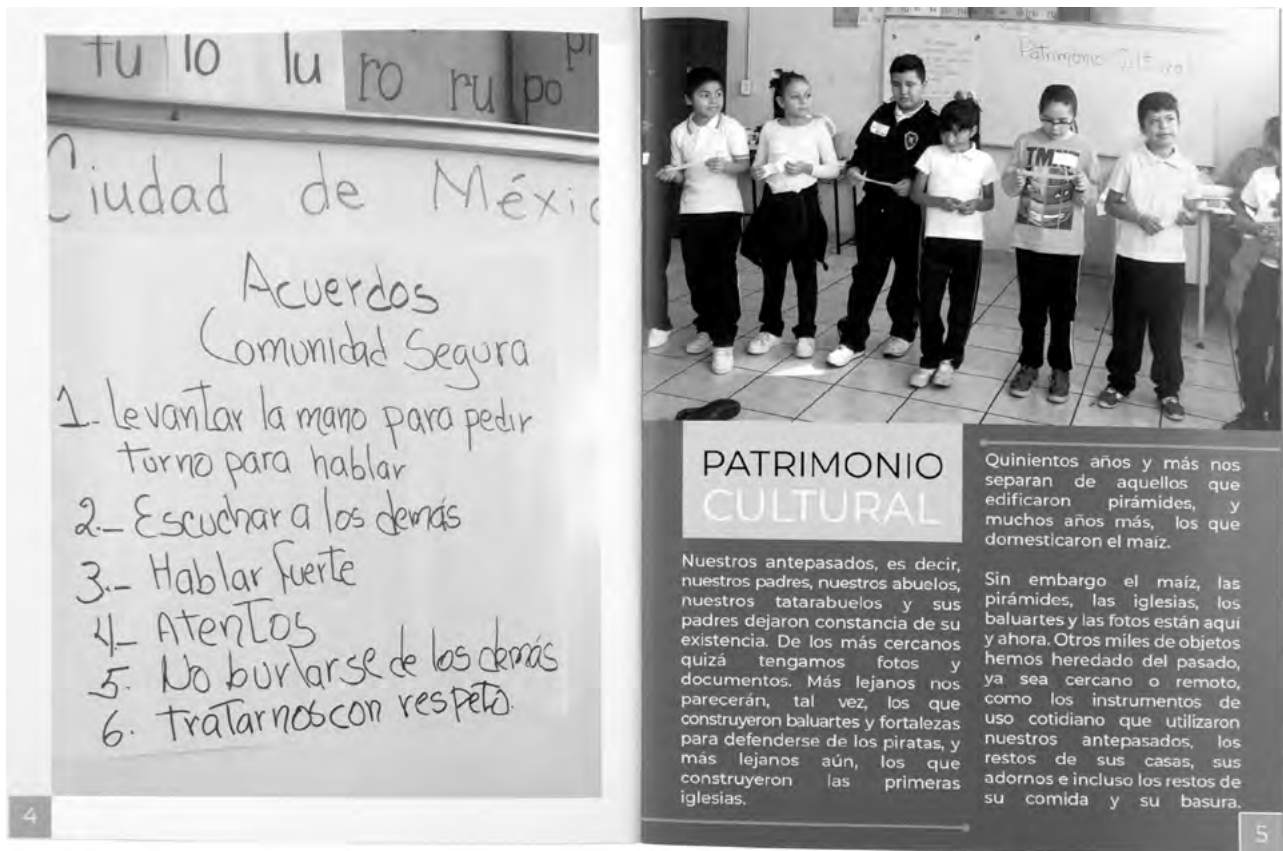 tu lo lu ro ru po
Ciudad de Méxic
Acuerdos
Comunidad Segura
1.- Levantar la mano para pedir
turno para hablar
2.- Escuchar a los demás
3.- Hablar fuerte
4.- Atentos
5. No burlarse de los demás
6. Tratarnos con respeto.
4
Patrimonio Cultural
TM
PATRIMONIO
CULTURAL
Nuestros antepasados, es decir,
nuestros padres, nuestros abuelos,
nuestros tatarabuelos y sus
padres dejaron constancia de su
existencia. De los más cercanos
quizá tengamos fotos y
documentos. Más lejanos nos
parecerán, tal vez, los que
construyeron baluartes y fortalezas
para defenderse de los piratas, y
más lejanos aún, los que
construyeron las primeras
iglesias.
Quinientos años y más nos
separan de aquellos que
edificaron pirámides, y
muchos años más, los que
domesticaron el maíz.
Sin embargo el maíz, las
pirámides, las iglesias, los
baluartes y las fotos están aquí
y ahora. Otros miles de objetos
hemos heredado del pasado,
ya sea cercano o remoto,
como los instrumentos de
uso cotidiano que utilizaron
nuestros antepasados, los
restos de sus casas, sus
adornos e incluso los restos de
su comida y su basura.
5